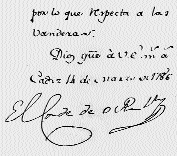 por lo que respecta a las
vanderas.
Dios gũe à V. E. m.s a.s
Cadiz 14 de Marzo de 1786
El Conde de O Reilly